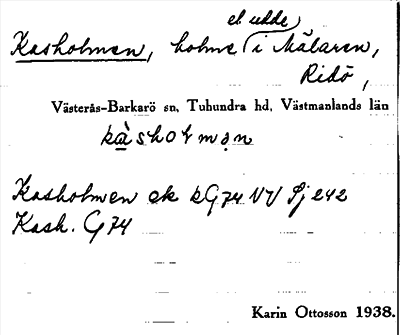 el. udde
Kasholmen, holme i Mälaren,
Ridö,
Västerås-Barkarö sn, Tuhundra hd, Västmanlands län
kàshoḷmạn
Kasholmen ek kG74 NV Sj 242
Kash. G74
Karin Ottosson 1938.